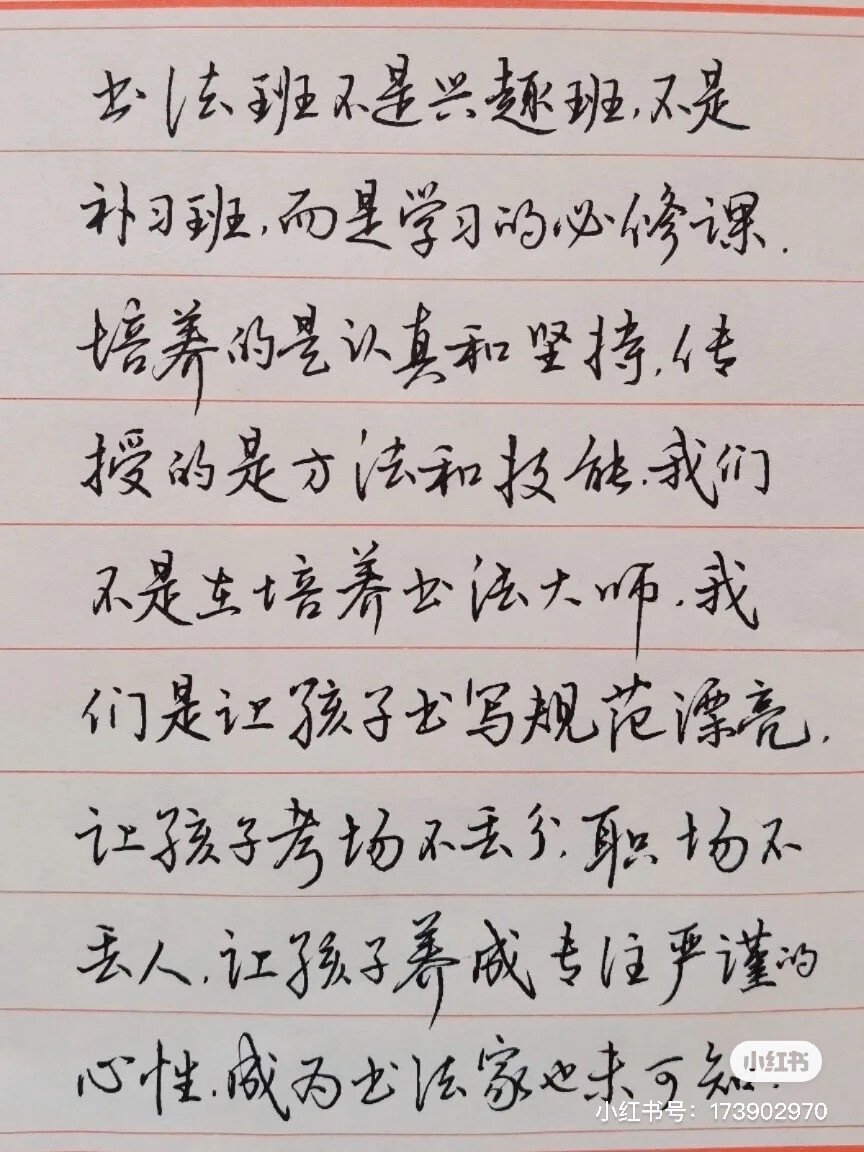 书法班不是兴趣班,不是
补习班,而是学习的必修课.
培养的是认真和坚持,传
授的是方法和技能.我们
不是在培养书法大师,我
们是让孩子书写规范漂亮,
让孩子考场不丢分,职场不
丢人,让孩子养成专注严谨的
心性,成为书法家也未可知.
小红书
小红书号:173902970